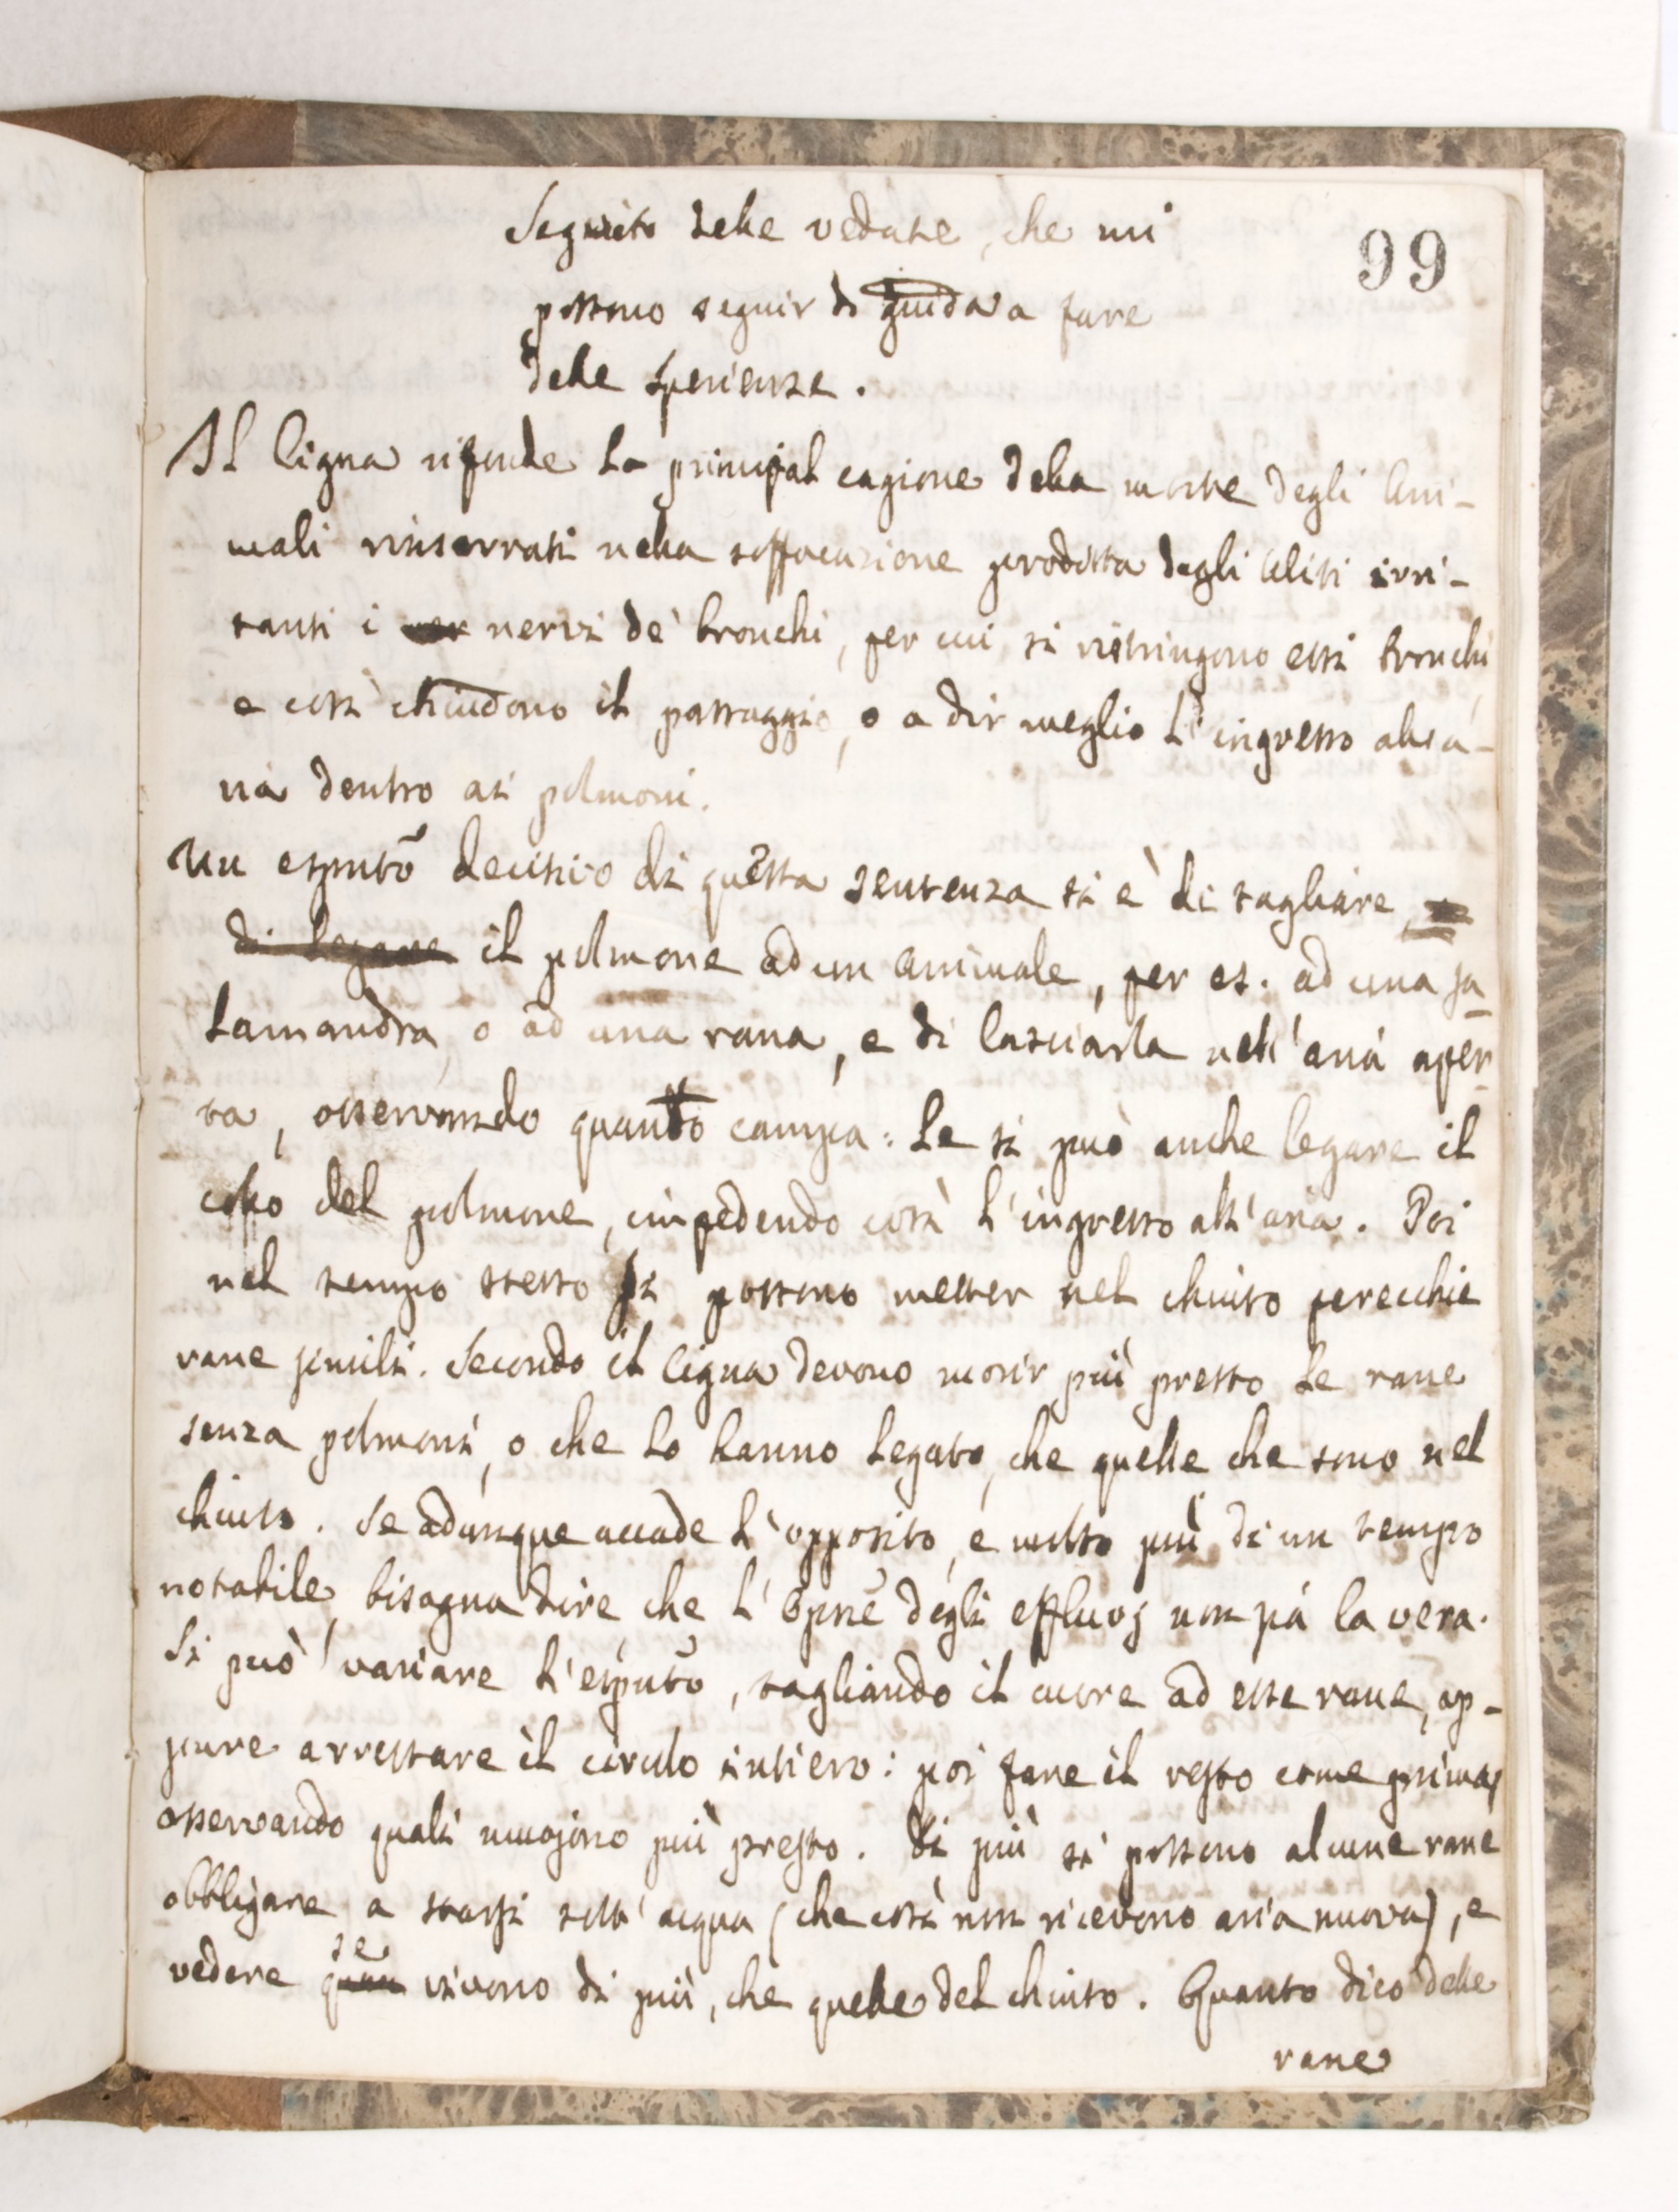 Seguito delle vedute, che mi
99
possono seguir di guida a fare
delle sperienze.
Il Cigna rifonde la principal cagione della morte degli Ani-
mali rinserrati nella soffocazione prodotta dagli aliti irri-
tanti i nervi de' bronchi, per cui si ristringono essi bronchi,
e così chiudono il passaggio, o a dir meglio l'ingresso all'a-
ria dentro ai polmoni.
Un esprimto decisivo di questa sentenza si è di tagliare,
di legare il polmone ad un animale, per es. ad una sa-
lamandra, o ad una rana, e di lasciarla nell'aria aper-
ta, osservando quanto campa: Le si può anche legare il
collo del polmone, impedendo così l'ingresso all'aria. Poi
nel tempo stesso si possono metter nel chiuso parecchie
rane simili. Secondo il Cigna devono morir più presto le rane
senza polmoni, o che lo hanno legato, che quelle che sono nel
chiuso. Se adunque accade l'opposito, e molto più di un tempo
notabile, bisogna dire che l'opne degli effluvj non sia la vera.
Si può variare l'esprimto, tagliando il cuore ad esse rane, op-
pure arrestare il circolo intiero: poi fare il resto come prima,
osservando quali muojono più presto. Di più si possono alcune rane
obbligare a starsi sott'acqua (che così non ricevono aria nuova), e
se
vedere vivono di più, che quelle del chiuso. Quanto dico delle
rane